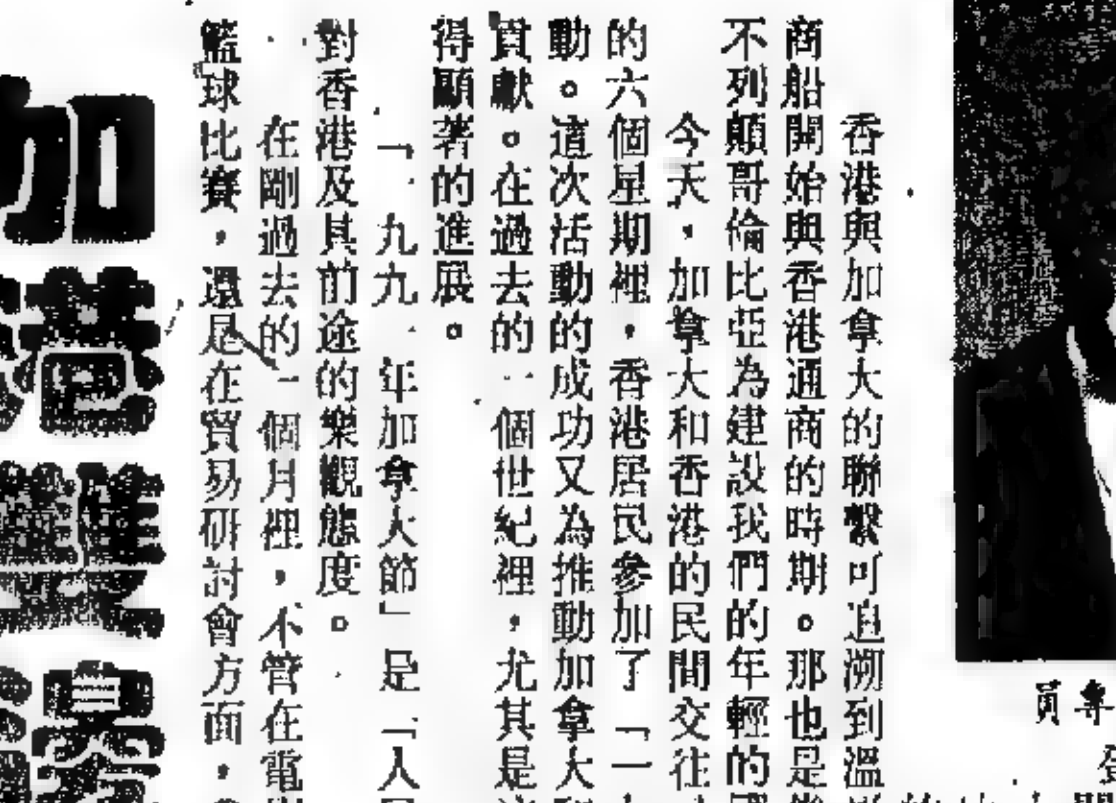 專員
香港與加拿大的聯繫可追溯到溫
商船開始與香港通商的時期。那也是
不列顛哥倫比亞為建設我們的年輕的
今天，加拿大和香港的民間交往
的六個星期裡，香港居民參加了「一
動。這次活動的成功又為推動加拿大
貢獻。在過去的一個世紀裡，尤其是
得顯著的進展。
「一九九一年加拿大節」是「人
對香港及其前途的樂觀態度。
在剛過去的一個月裡，不管在電
籃球比賽，還是在貿易研討會方面，
加港雙